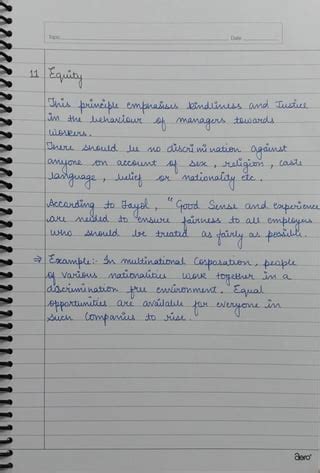 Topic
Date
11 Equity
This principle emphasises kindliness and Justice
in the behaviour of managers towards
workers.
There should be no discrimination against
anyone on account of sex, religion, caste
language, belief or nationality etc.
According to Fayol, "Good Sense and experience
are needed to ensure fairness to all employees
who should be treated as fairly as possible.
⇒ Example:- In multinational Corporation, people
of various nationalities work together in a
discrimination free environment. Equal
opportunities are available for everyone in
such Companies to rise.
aero